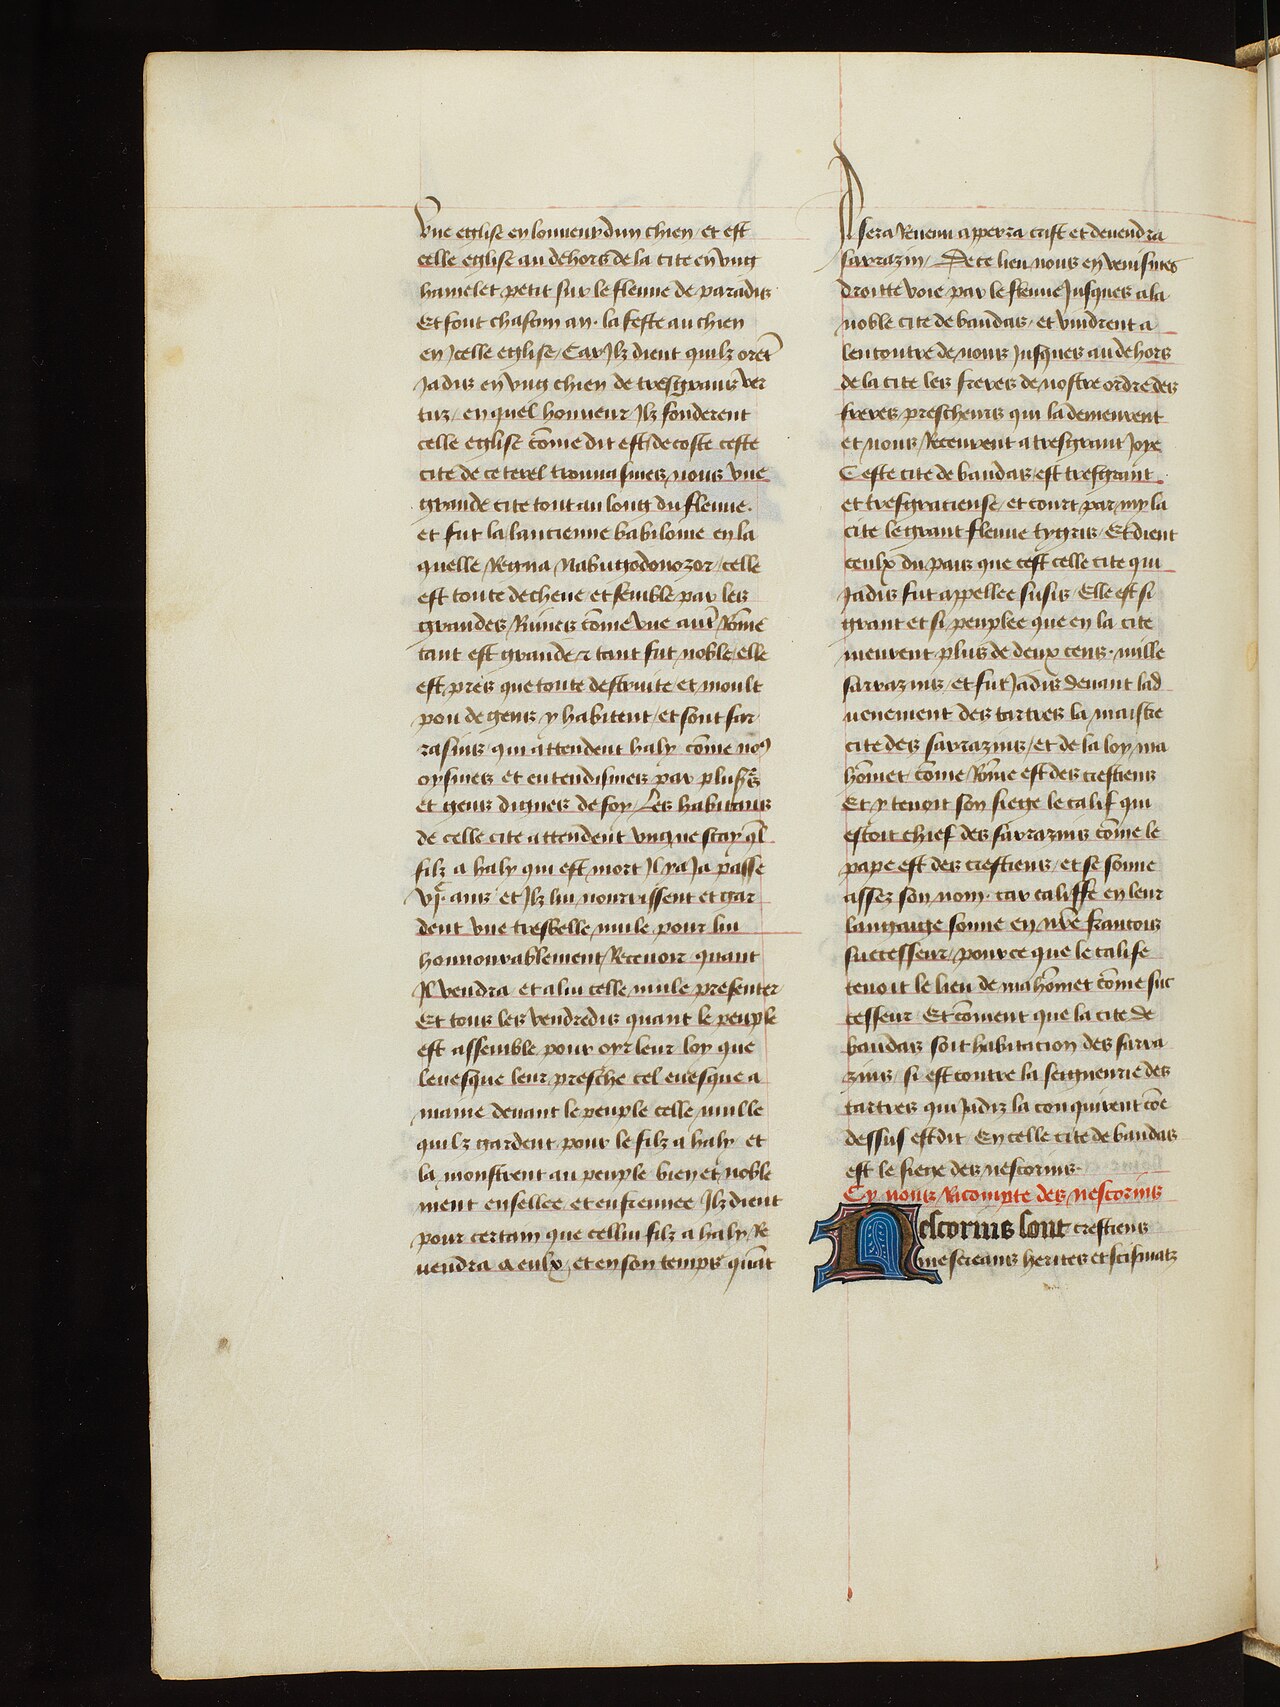 Vne eglise en lonneur dun chien / et est
celle eglise au dehors de la cite en vng
hamelet petit sur le fleuue de paradis
Et font chascun an · la feste au chien
en Icelle eglise / Car Ilz dient quilz orēt
Jadis en vng chien de tresgrans ver
tuz / en quel honneur Ilz fonderent
celle eglise cōme dit est / de coste ceste
cite de ceterel trouuasmes nous vne
grande cite tout au long du fleuue ·
et fut la lancienne babiloine en la
quelle Regna Nabugodonozor / celle
est toute decheue et semble par les
grandes Ruines cōme vne autre Rōme
tant est grande ⁊ tant fut noble / elle
est pres que toute destruite et moult
pou de gens y habitent / et sont sar
rasins qui attendent haly cōme noꝰ
oysmes et entendismes par plusrs
et gens dignes de foy / Les habitans
de celle cite attendent vng ne scay ql
filz a haly qui est mort Il ya Ja passe
vjc ans et Ilz lui nourrissent et gar
dent vne tresbelle mule pour lui
honnourablement Receuoir quant
Il vendra et a lui celle mule presenter
Et tous les vendredis quant le peuple
est assemble pour oyr leur loy que
leuesque leur presche cel euesque a
maine deuant le peuple celle mulle
quilz gardent pour le filz a haly et
la monstrent au peuple bien et noble
ment ensellee et enfrennee Ilz dient
pour certain que cellui filz a haly Re
uendra a eulx / et en son temps quāt
Il sera Reuenu apperra crist et deuendra
sarrazin / De ce lieu nous en venismes
droitte voie par le fleuue Jusques a la
noble cite de baudas / et vindrent a
lencontre de nous Jusques au dehors
de la cite les freres de nostre ordre des
freres prescheurs qui la demeurent
et nous Receurent a tresgrant Joye
Ceste cite de baudas est tresgrant
et tresgracieuse / et court par my la
cite le grant fleuue tygris / Et dient
ceulx du pais que cest celle cite qui
Jadis fut appellee susis / Elle est si
grant et si peuplee que en la cite
meurent plus de deux cens · mille
sarrazins / et fut Jadis deuant lad
uenement des tartres la maistre
cite des sarrazins / et de la loy ma
hōmet cōme Rōme est des crestiens
Et y tenoit son siege le calif qui
estoit chief des sarrazins cōme le
pape est des crestiens / et se sōme
assez son nom · car califfe en leur
langaige sonne en nrē francois
successeur / pour ce que le califfe
tenoit le lieu de mahōmet cōme suc
cesseur Et cōment que la cite de
baudas soit habitacion des sarra
zins / si est contre la seigneurie des
tartres qui Jadiz la conquirent cōe
dessus est dit En celle cite de baudas
est le siege des nescorins
Cy nous Racompte des nescorins
Nescorins sont crestiens
mescreans herites et scismatz